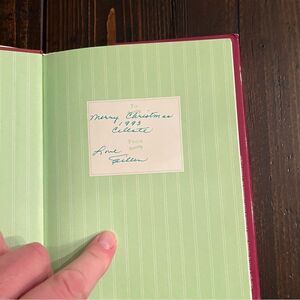 To
Merry Christmas
1993
Celeste
From
Love
Eileen